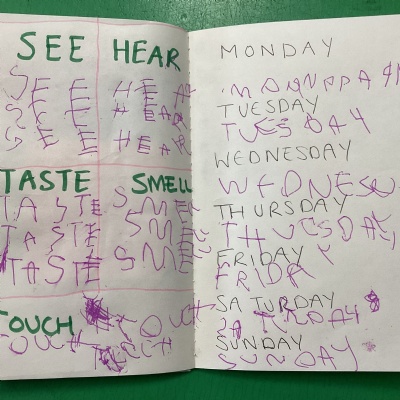 SEE HEAR
SEE HEA
SEE HEAR
SEE HEAR
TASTE SMELL
TASTE SMEL
TASTE SMEL
TASTE SMEL
TOUCH TOUCH
TOUCH TOUCH
MONDAY
TUESDAY
TUESDAY
WEDNESDAY
WEDNES
THURSDAY
THUESDAY
FRIDAY Y
FRIDA
SATURDAY
SATRDAY
SUNDAY
SUNDAY